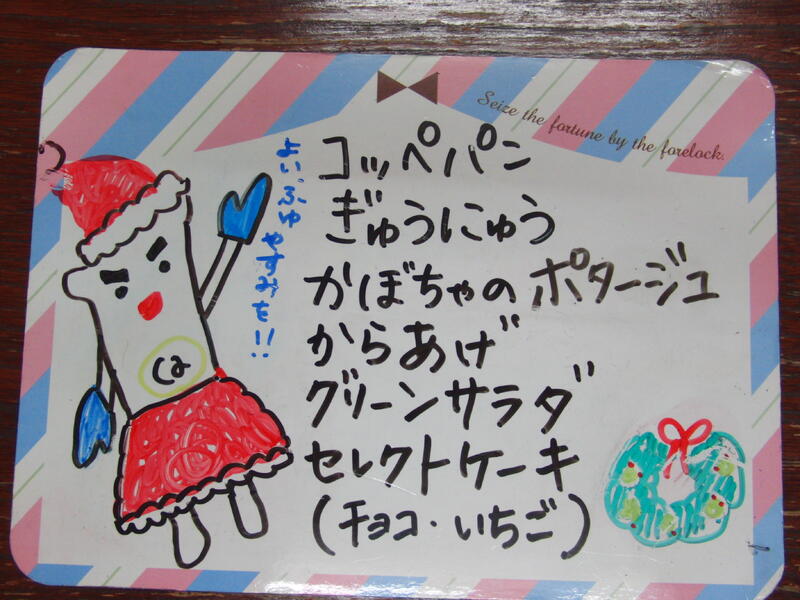 Seize the fortune by the forelock.
コッペパン
ぎゅうにゅう
かぼちゃのポタージュ
からあげ
グリーンサラダ
セレクトケーキ
(チョコ・いちご)
よいふゆやすみを!!